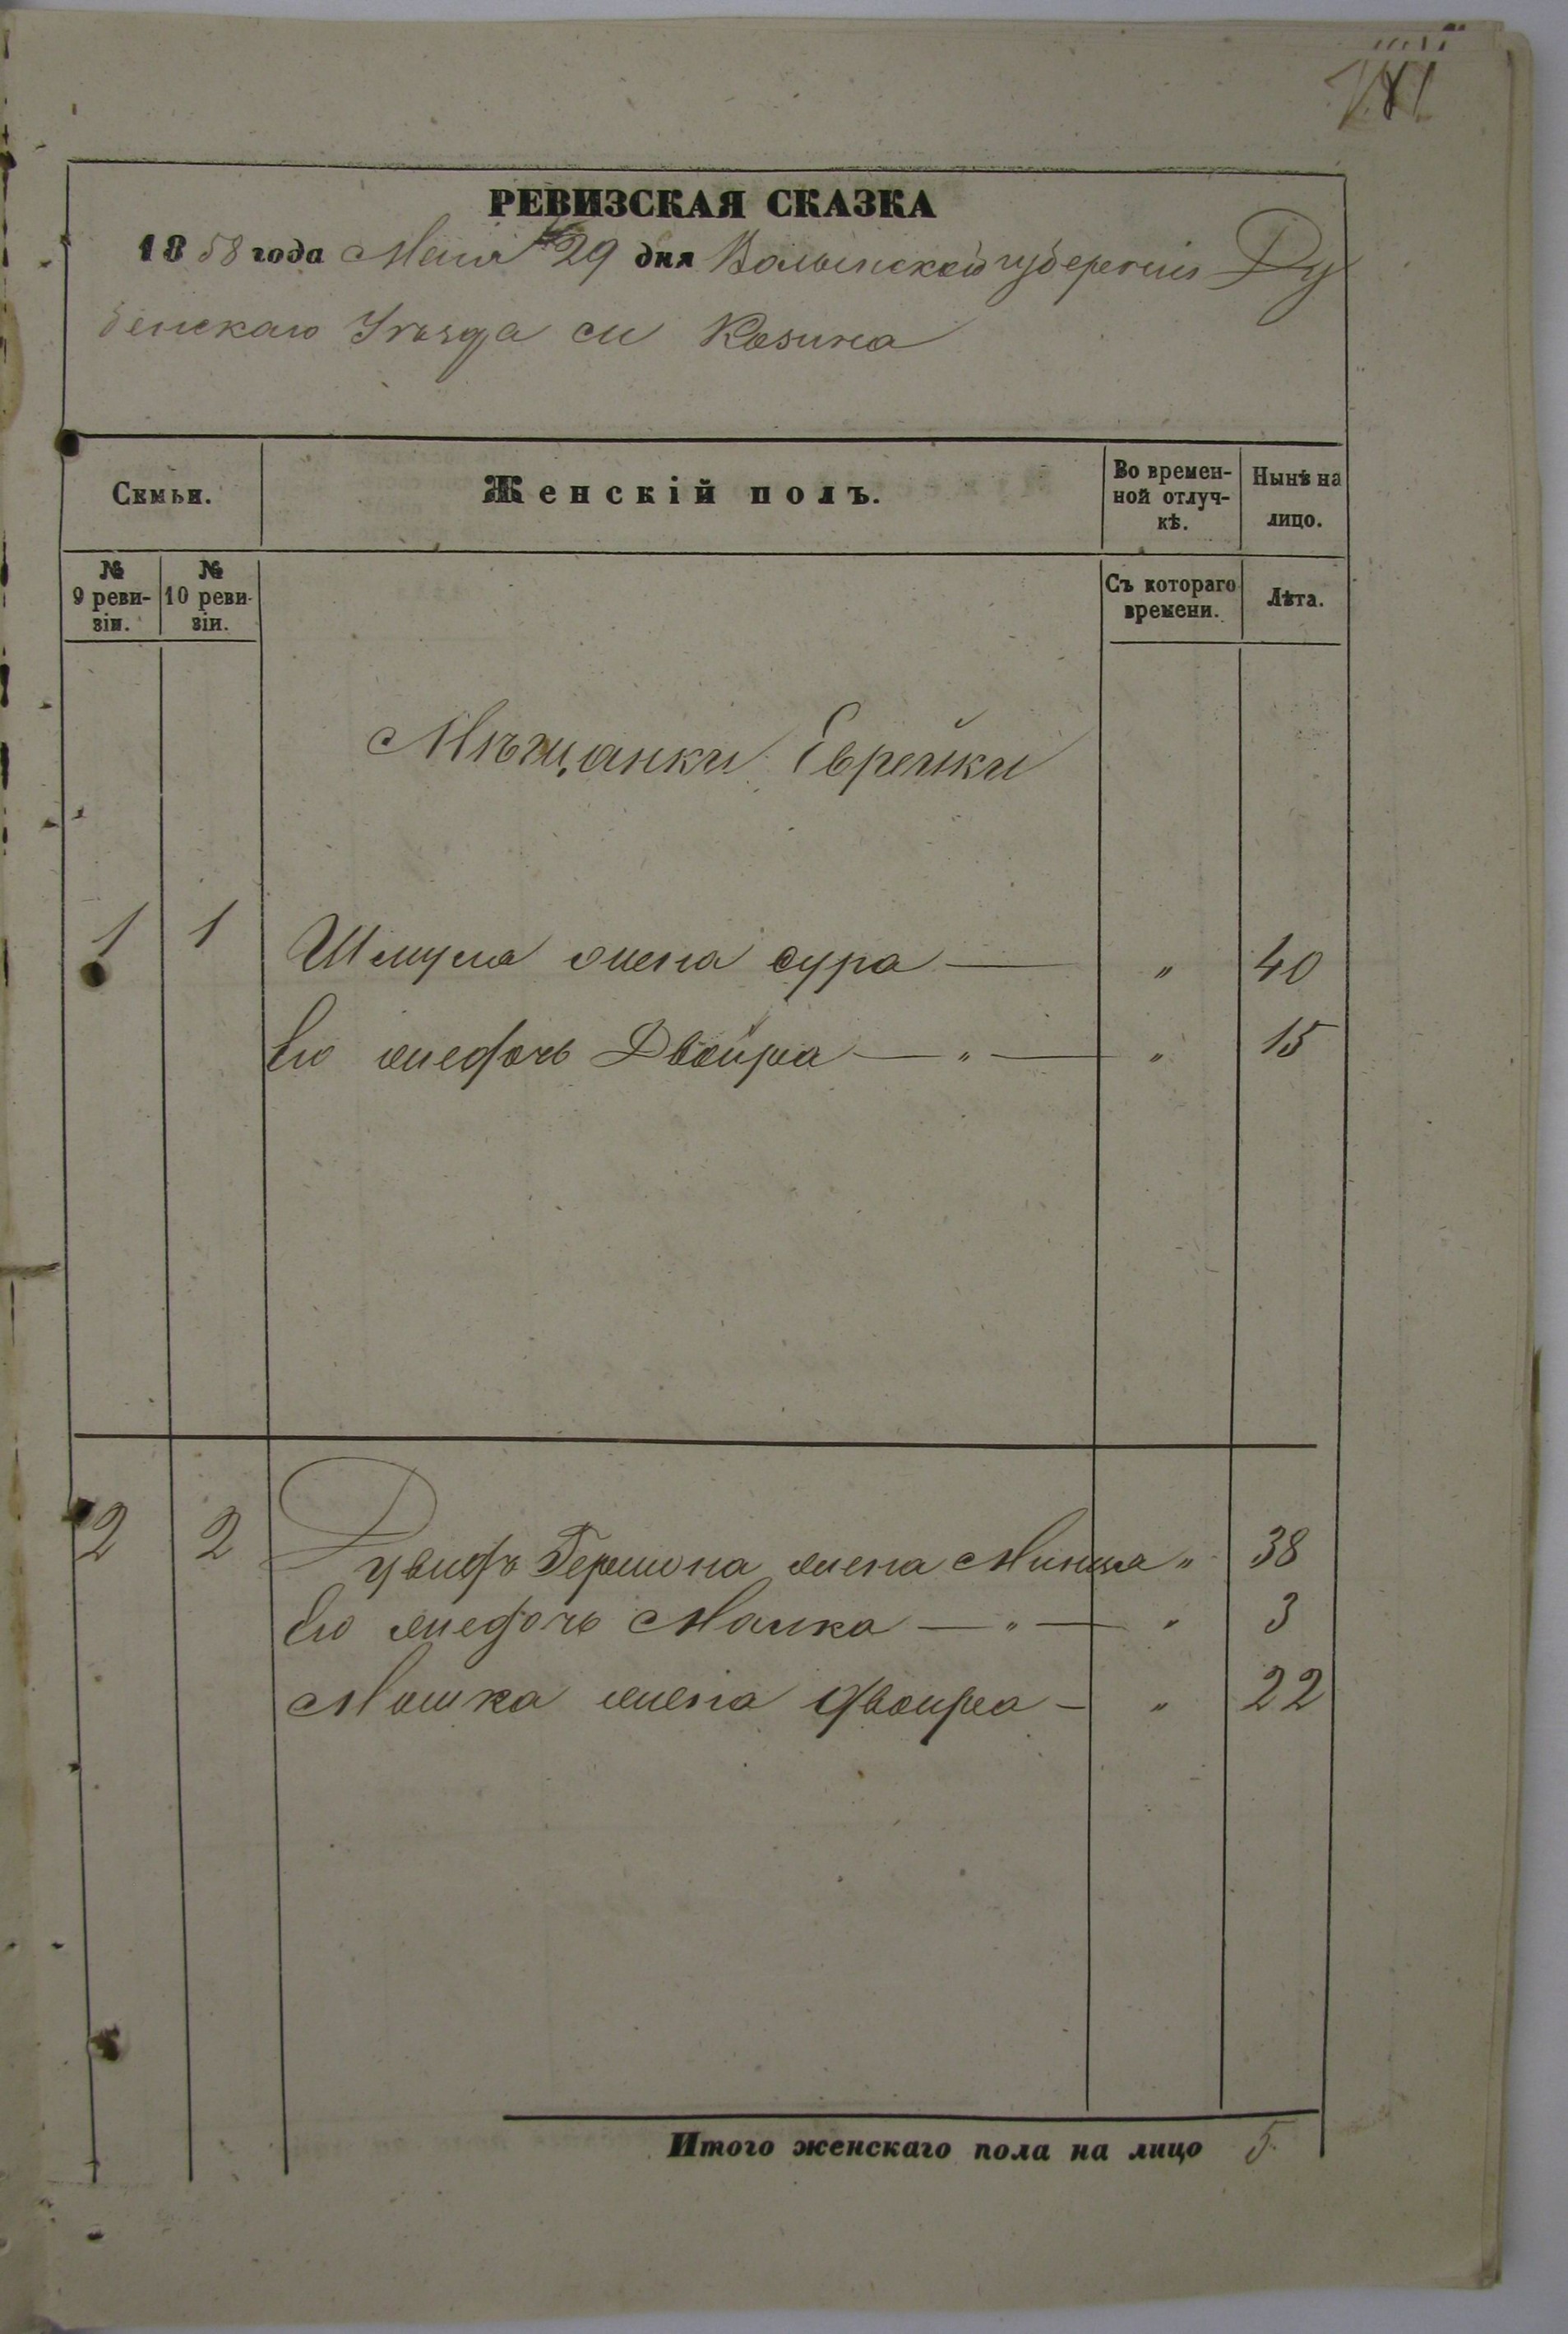 РЕВИЗСКАЯ СКАЗКА
1858 года Маія 29 дня Волынской губерніи Ду
бенскаго Уѣзда м Козина
Семьи.
Женскій полъ.
Во времен-
ной отлуч-
кѣ.
Нынѣ на
лицо.
№
9 реви-
зіи.
№
10 реви-
зіи.
Съ котораго
времени.
Лѣта.
Мѣщанки Еврейки
1 1 Шмуля жена сура — " 40
Его жедочь Двойра — " — " 15
2 2 Гершона жена " 38
Его жедочь Малка — " — " 3
Мошка жена двойра — " 22
Итого женскаго пола на лицо 5.